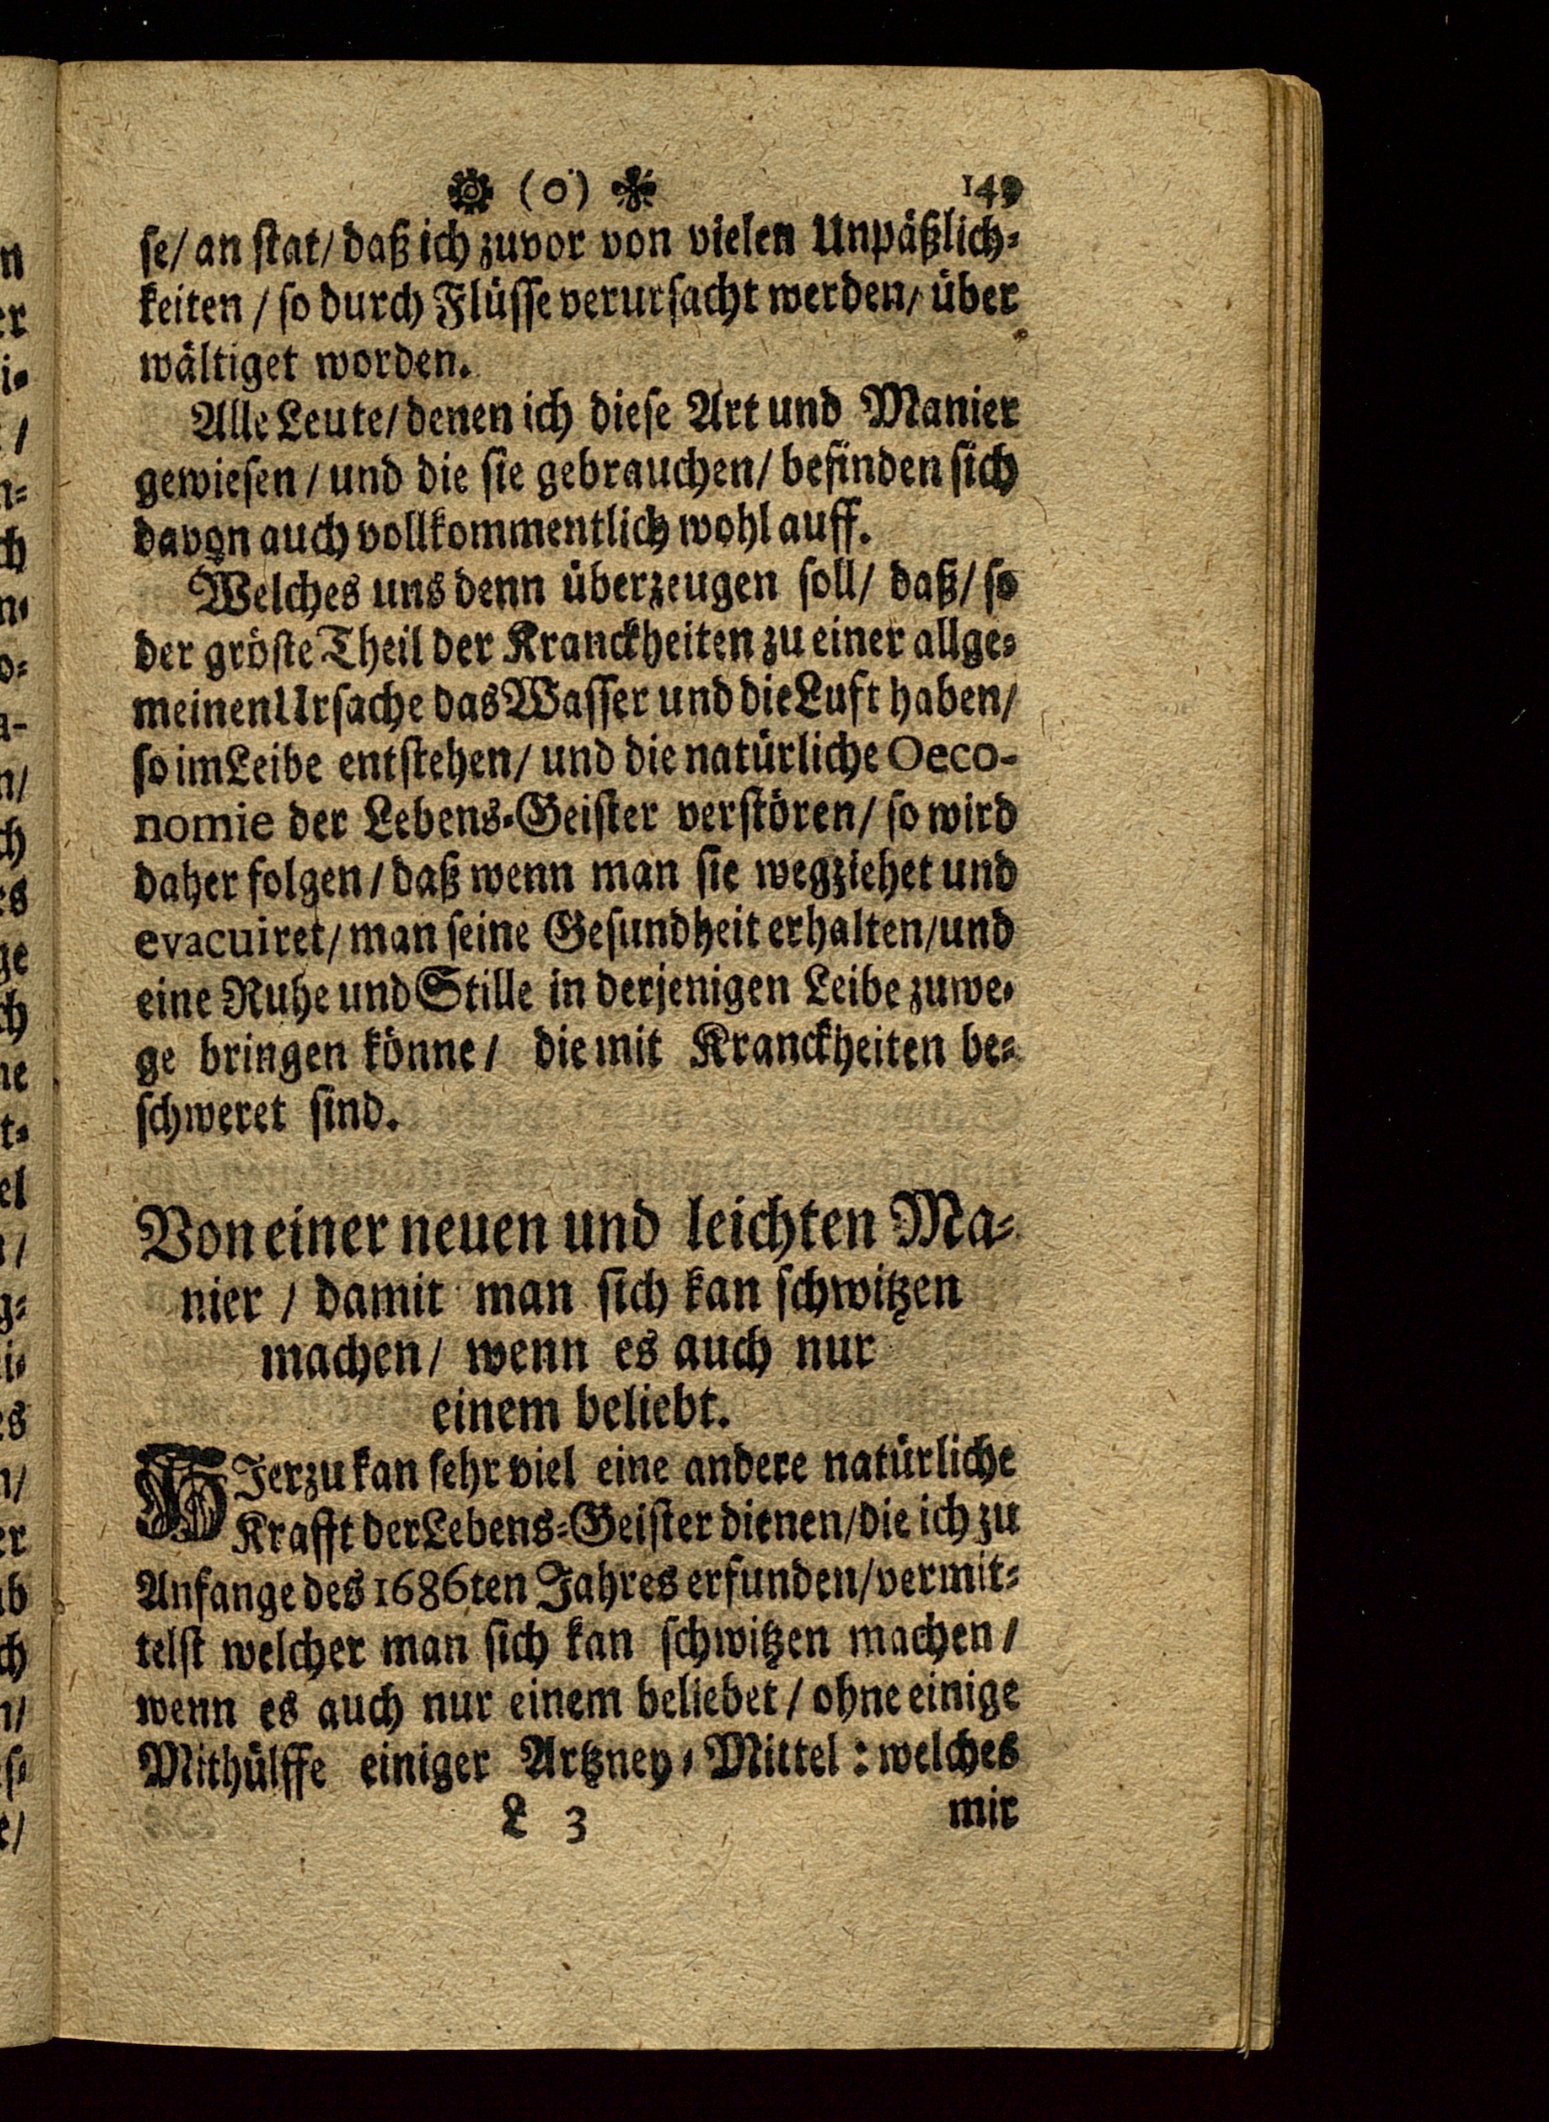 (0) 149
se/ an stat/ daß ich zuvor von vielen Unpäßlich-
keiten / so durch Flüsse verursacht werden/ über
wältiget worden.
Alle Leute/ denen ich diese Art und Manier
gewiesen / und die sie gebrauchen/ befinden sich
davon auch vollkommentlich wohl auff.
Welches uns denn überzeugen soll/ daß/ so
der gröste Theil der Kranckheiten zu einer allge-
meinen Ursache das Wasser und die Luft haben/
so im Leibe entstehen/ und die natürliche Oeco-
nomie der Lebens-Geister verstören/ so wird
daher folgen / daß wenn man sie wegziehet und
evacuiret/ man seine Gesundheit erhalten/ und
eine Ruhe und Stille in derjenigen Leibe zuwe-
ge bringen könne / die mit Kranckheiten be-
schweret sind.
Von einer neuen und leichten Ma-
nier / damit man sich kan schwitzen
machen/ wenn es auch nur
einem beliebt.
HIerzu kan sehr viel eine andere natürliche
Krafft der Lebens-Geister dienen/ die ich zu
Anfange des 1686ten Jahres erfunden/ vermit-
telst welcher man sich kan schwitzen machen /
wenn es auch nur einem beliebet / ohne einige
Mithülffe einiger Artzney-Mittel: welches
L 3 mir